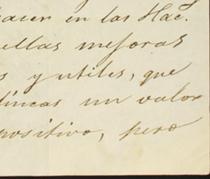 hacer en las Hac.
ellas mejoras
s y utiles, que
fincas un valor
positivo, pero